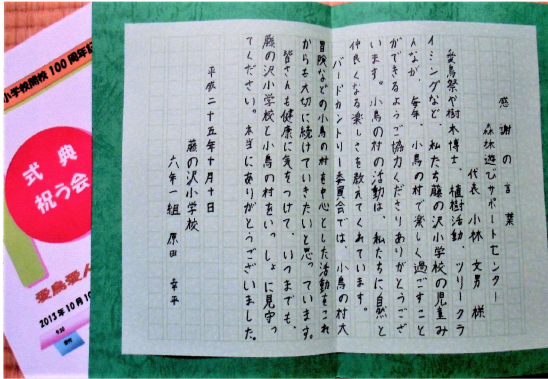 感謝の言葉
森林遊びサポートセンター
代表 小林 文男 様
愛鳥祭や樹木博士、植樹活動 ツリークラ
イミングなど、私たち藤の沢小学校の児童み
んなが 毎年、小鳥の村で楽しく過ごすこと
ができるようご協力くださりありがとうござ
います。小鳥の村の活動は、私たちに自然と
仲良くなる楽しさを教えてくれています。
バードカントリー委員会では、小鳥の村大
冒険などの小鳥の村を中心とした活動をこれ
からも大切に続けていきたいと思っています。
皆さんも健康に気をつけて、いつまでも、
藤の沢小学校と小鳥の村をいっしょに見守っ
てください。本当にありがとうございました。
平成二十五年十月十日
藤の沢小学校
六年一組 原田 幸平
小学校開校100周年記
式典
祝う会
愛鳥愛人
2013年10月10